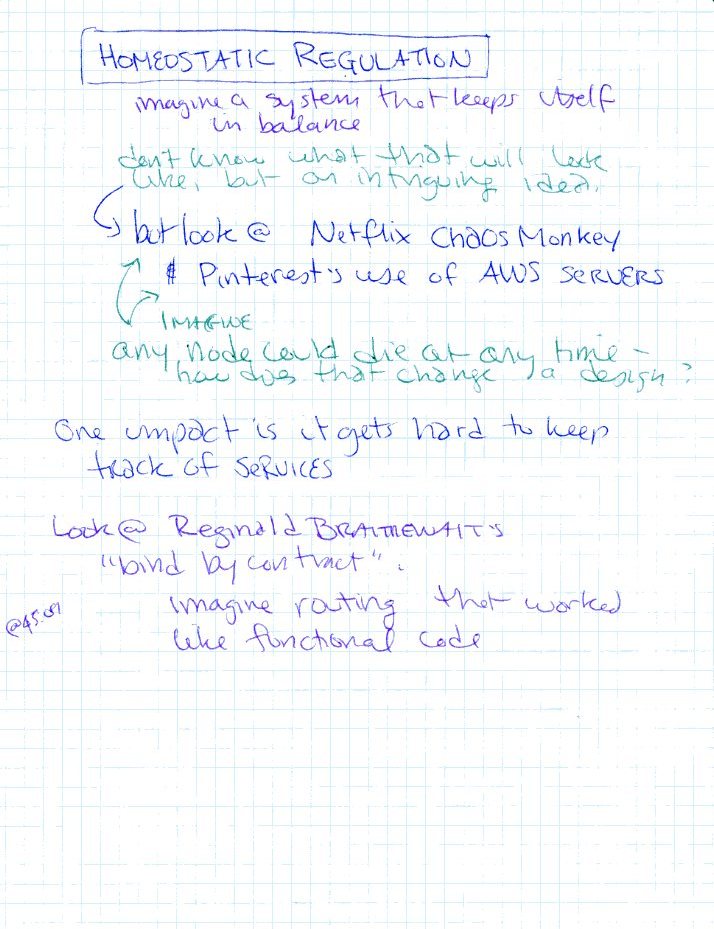 HOMEOSTATIC REGULATION
imagine a system that keeps itself
in balance
don't know what that will look
like, but an intriguing idea.
but look @ Netflix Chaos Monkey
& Pinterest's use of AWS SERVERS
IMAGINE
any node could die at any time -
how does that change a design?
One impact is it gets hard to keep
track of SERVICES
Look @ Reginald BRAITHEWAIT's
"bind by contract".
imagine routing that worked
@45:09
like functional code